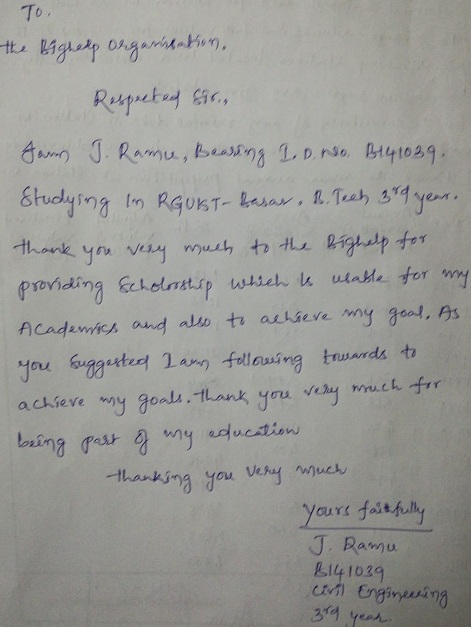 To.
the Bighelp Organisation.
Respected Sir.,
I amn J. Ramu, Bearing I.D. no. B141039.
Studying In RGUKT-Basar. B.Tech 3rd year.
thank you very much to the Bighelp for
providing Scholorship which is usable for my
Academics and also to achieve my goal. As
you Suggested I amn following towards to
achieve my goals. thank you very much for
being part of my education
thanking you very much
yours faithfully
J. Ramu
B141039
Civil Engineering
3rd year.